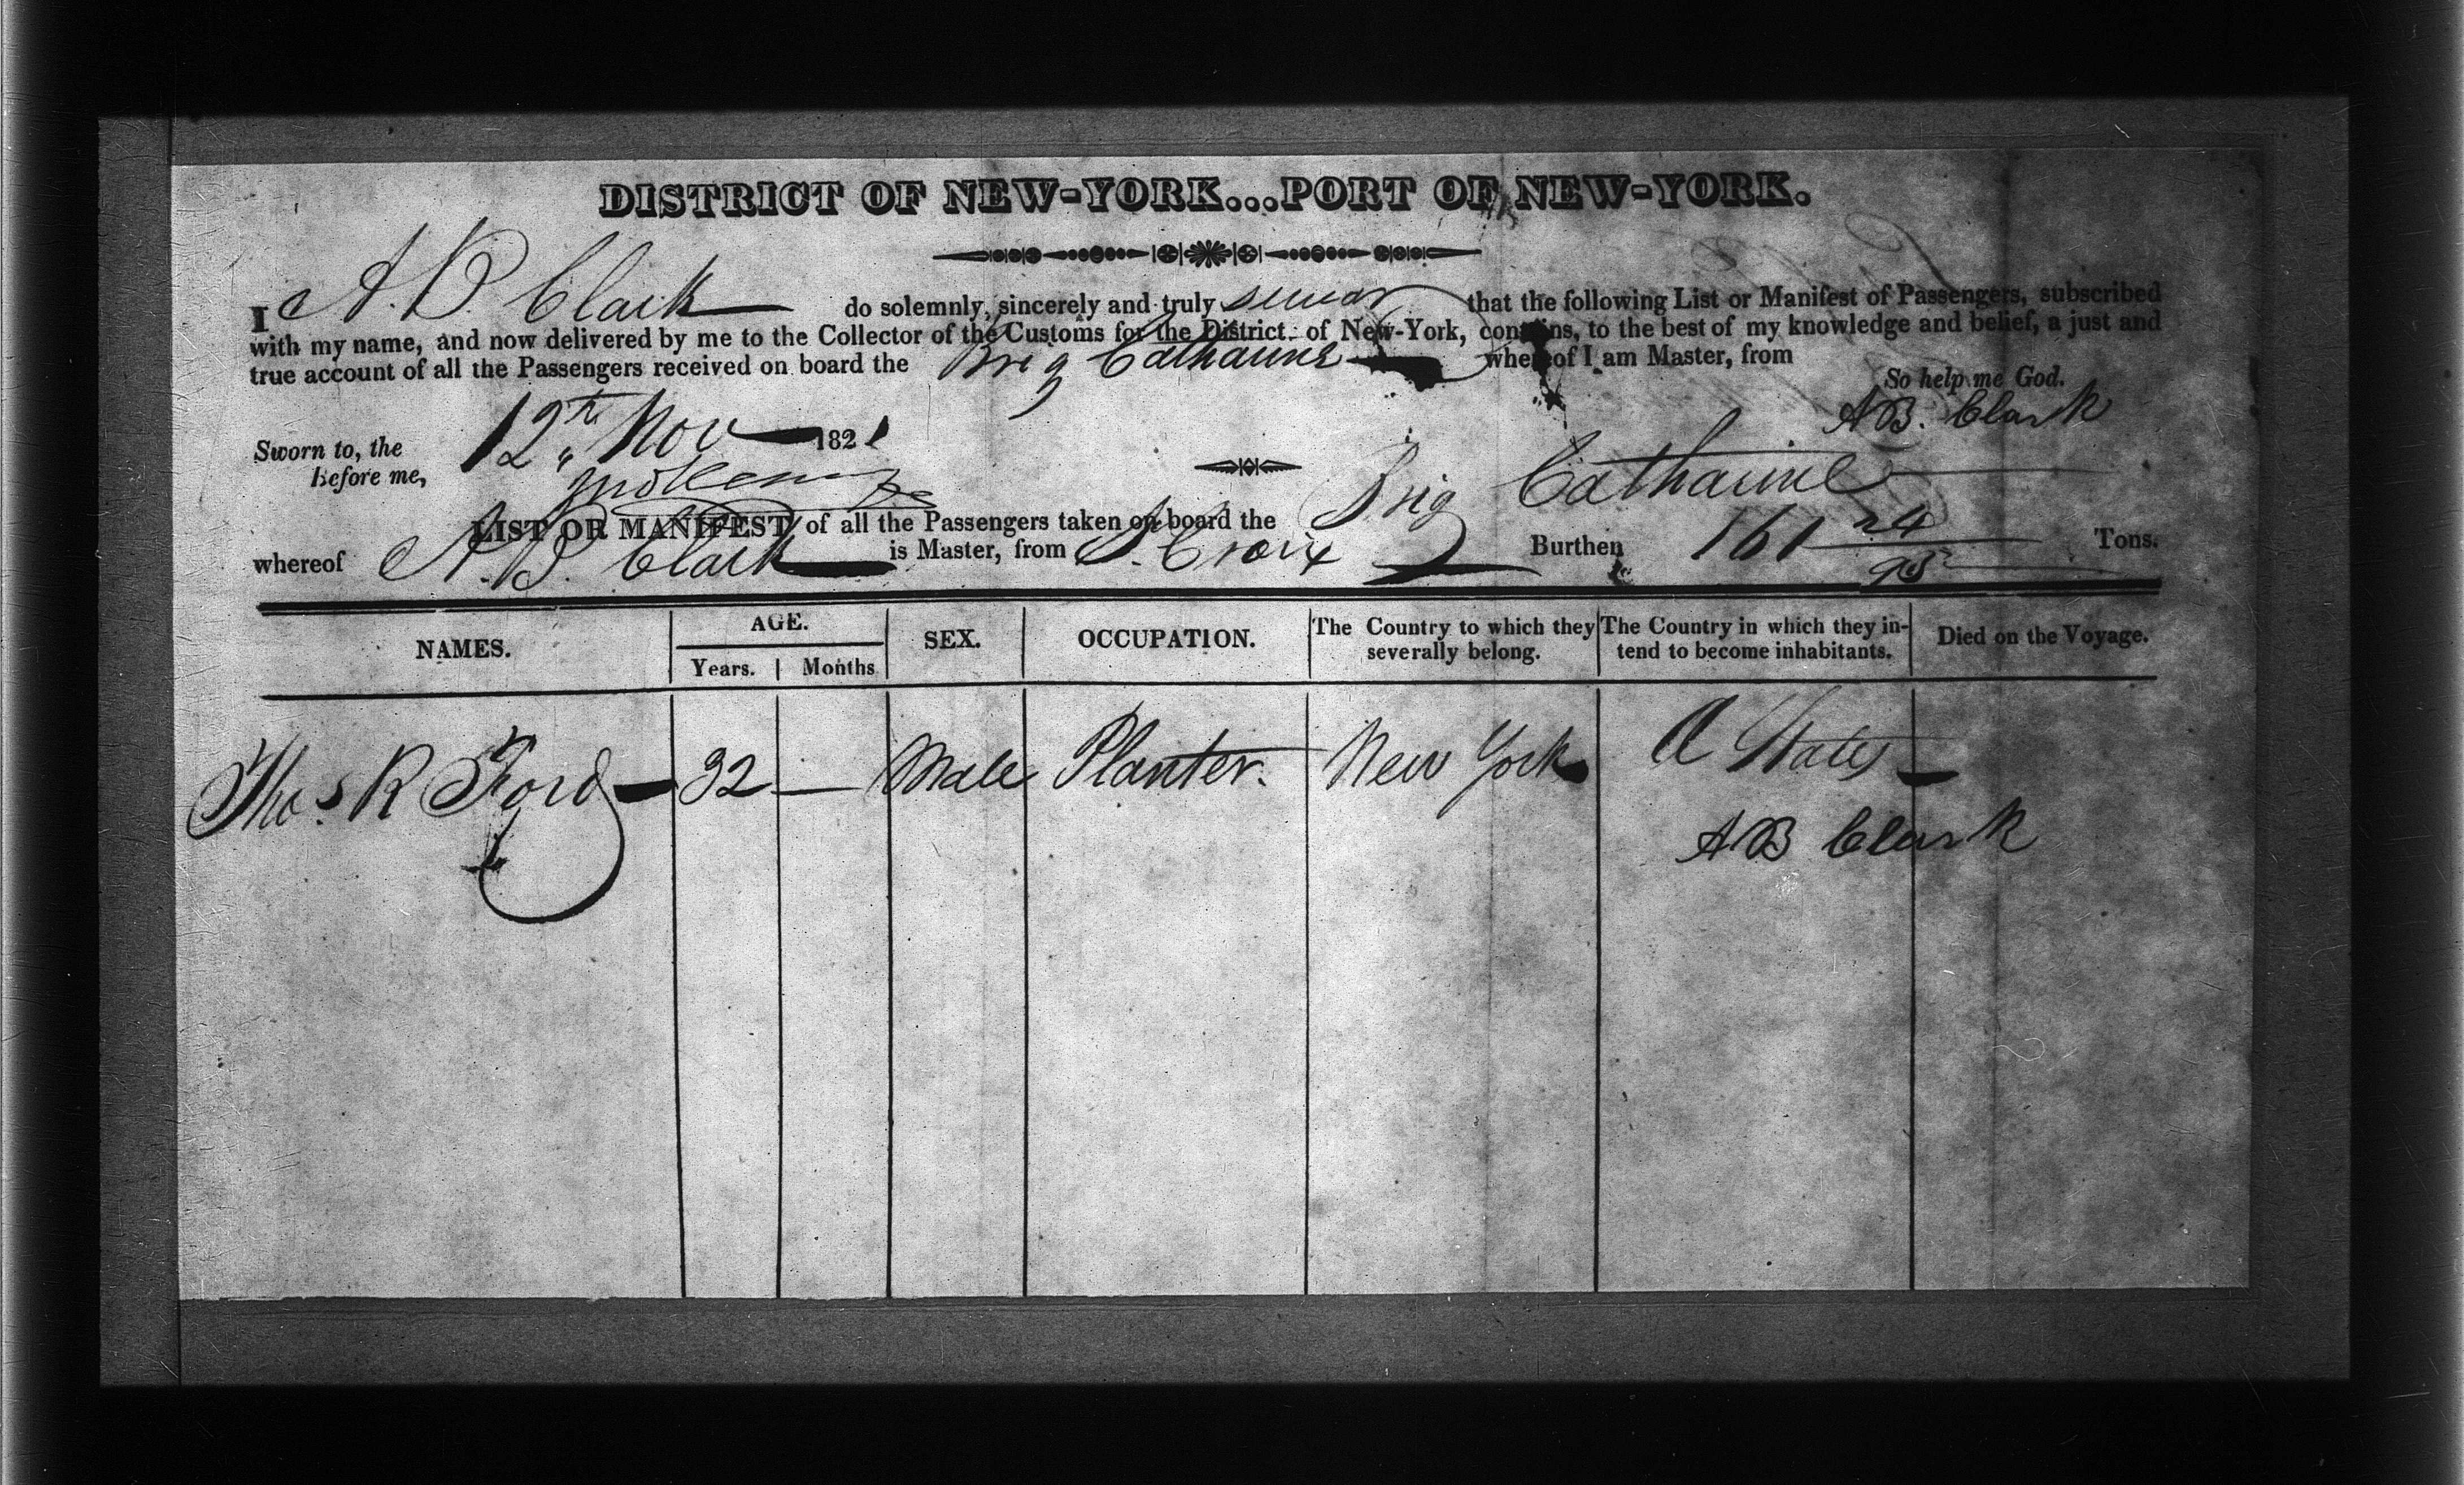 DISTRICT OF NEW-YORK...PORT OF NEW-YORK.
I A. B. Clark do solemnly, sincerely and truly swear that the following List or Manifest of Passengers, subscribed
with my name, and now delivered by me to the Collector of the Customs for the District of New-York, contains, to the best of my knowledge and belief, a just and
true account of all the Passengers received on board the Brig Catharine whereof I am Master, from
So help me God.
A B. Clark
Sworn to, the 12th Nov 1821
Before me,
LIST OR MANIFEST of all the Passengers taken on board the Brig Catharine
whereof A. B. Clark is Master, from S. Croix Burthen 161 24/95 Tons.
NAMES. AGE. SEX. OCCUPATION. The Country to which they severally belong. The Country in which they intend to become inhabitants. Died on the Voyage.
Years. Months
Thos. R Ford 32 — Male Planter. New York U States —
A B Clark